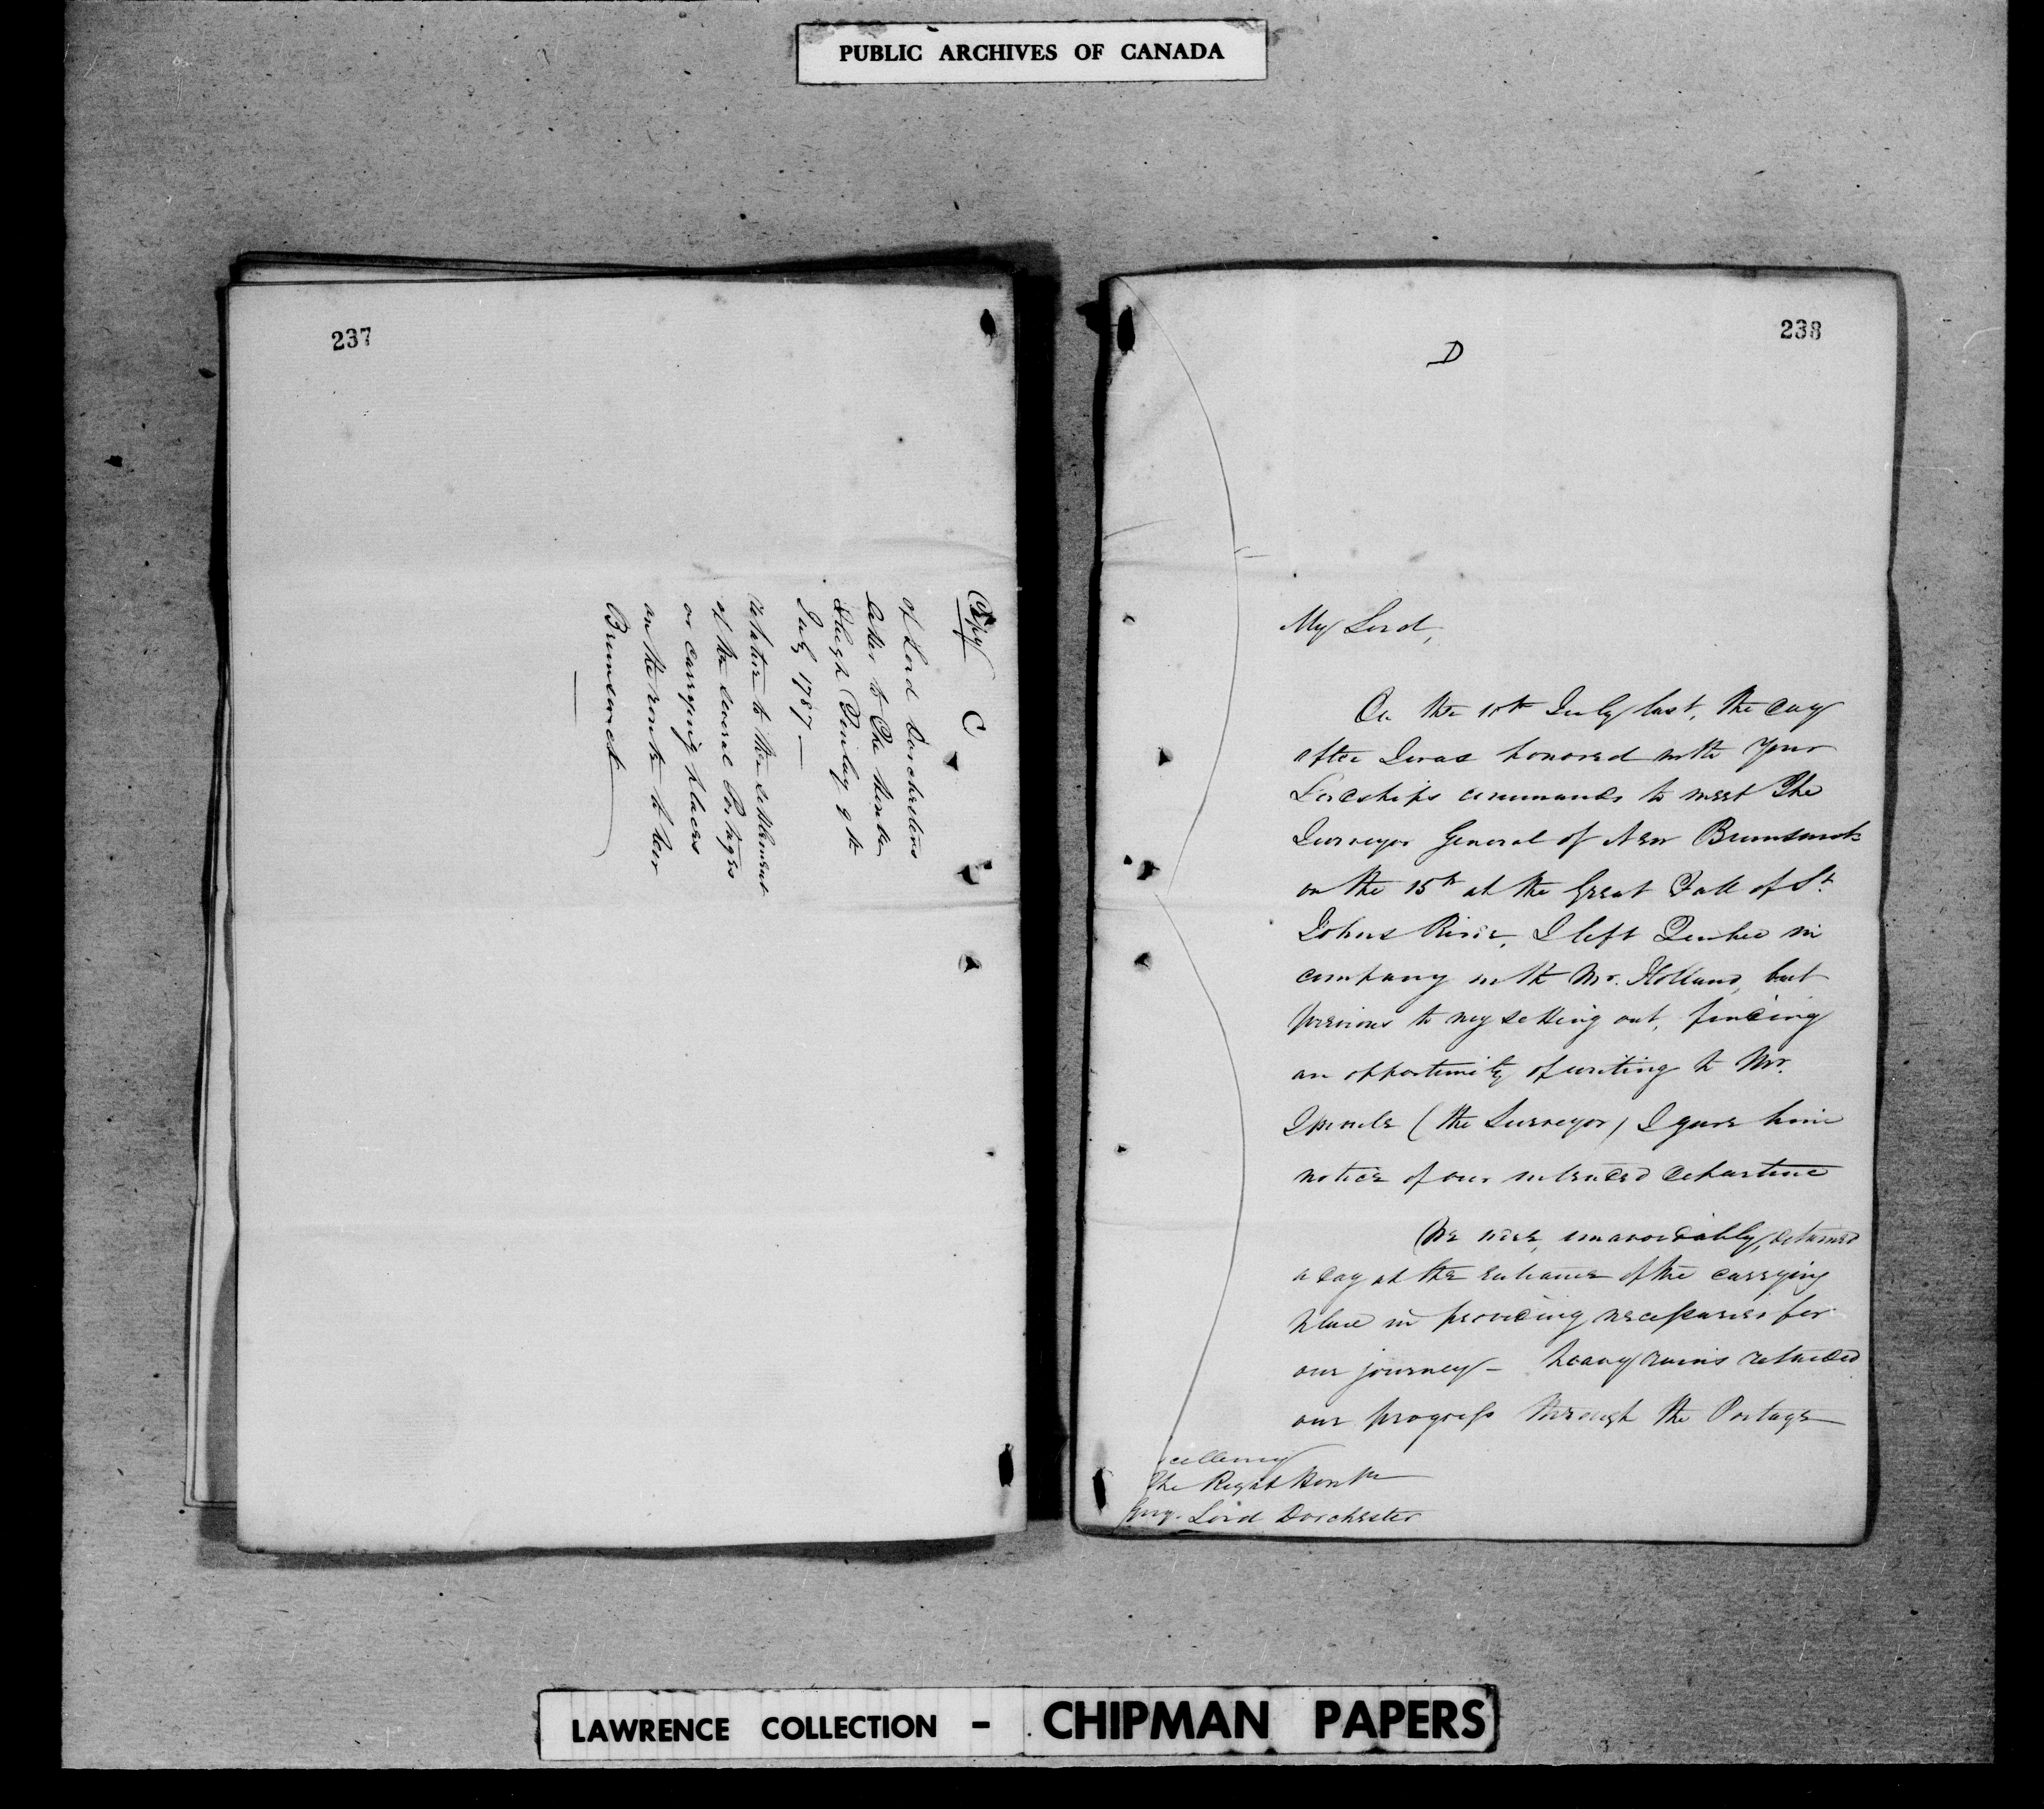 PUBLIC ARCHIVES OF CANADA
237
Copy
C
of Lord Dorchesters
letter to The Honble
Hugh Finlay 9th
July 1787 —
relative to the settlement
of the several Portages
or carrying places
on the route to New
Brunswick
238
D
My Lord,
On the 10th July last, the day
after I was honored with Your
Lordships commands to meet The
Surveyor General of New Brunswick
on the 15th at the Great Fall of St.
Johns River, I left Quebec in
company with Mr. Holland, but
previous to my setting out, finding
an opportunity of writing to Mr.
Sproule (the Surveyor) I gave him
notice of our intended departure
We were, unavoidably, detained
a day at the entrance of the carrying
place in providing necessaries for
our journey – heavy rains retarded
our progress through the Portage
cellency
The Right Honble
Guy. Lord Dorchester
LAWRENCE COLLECTION - CHIPMAN PAPERS